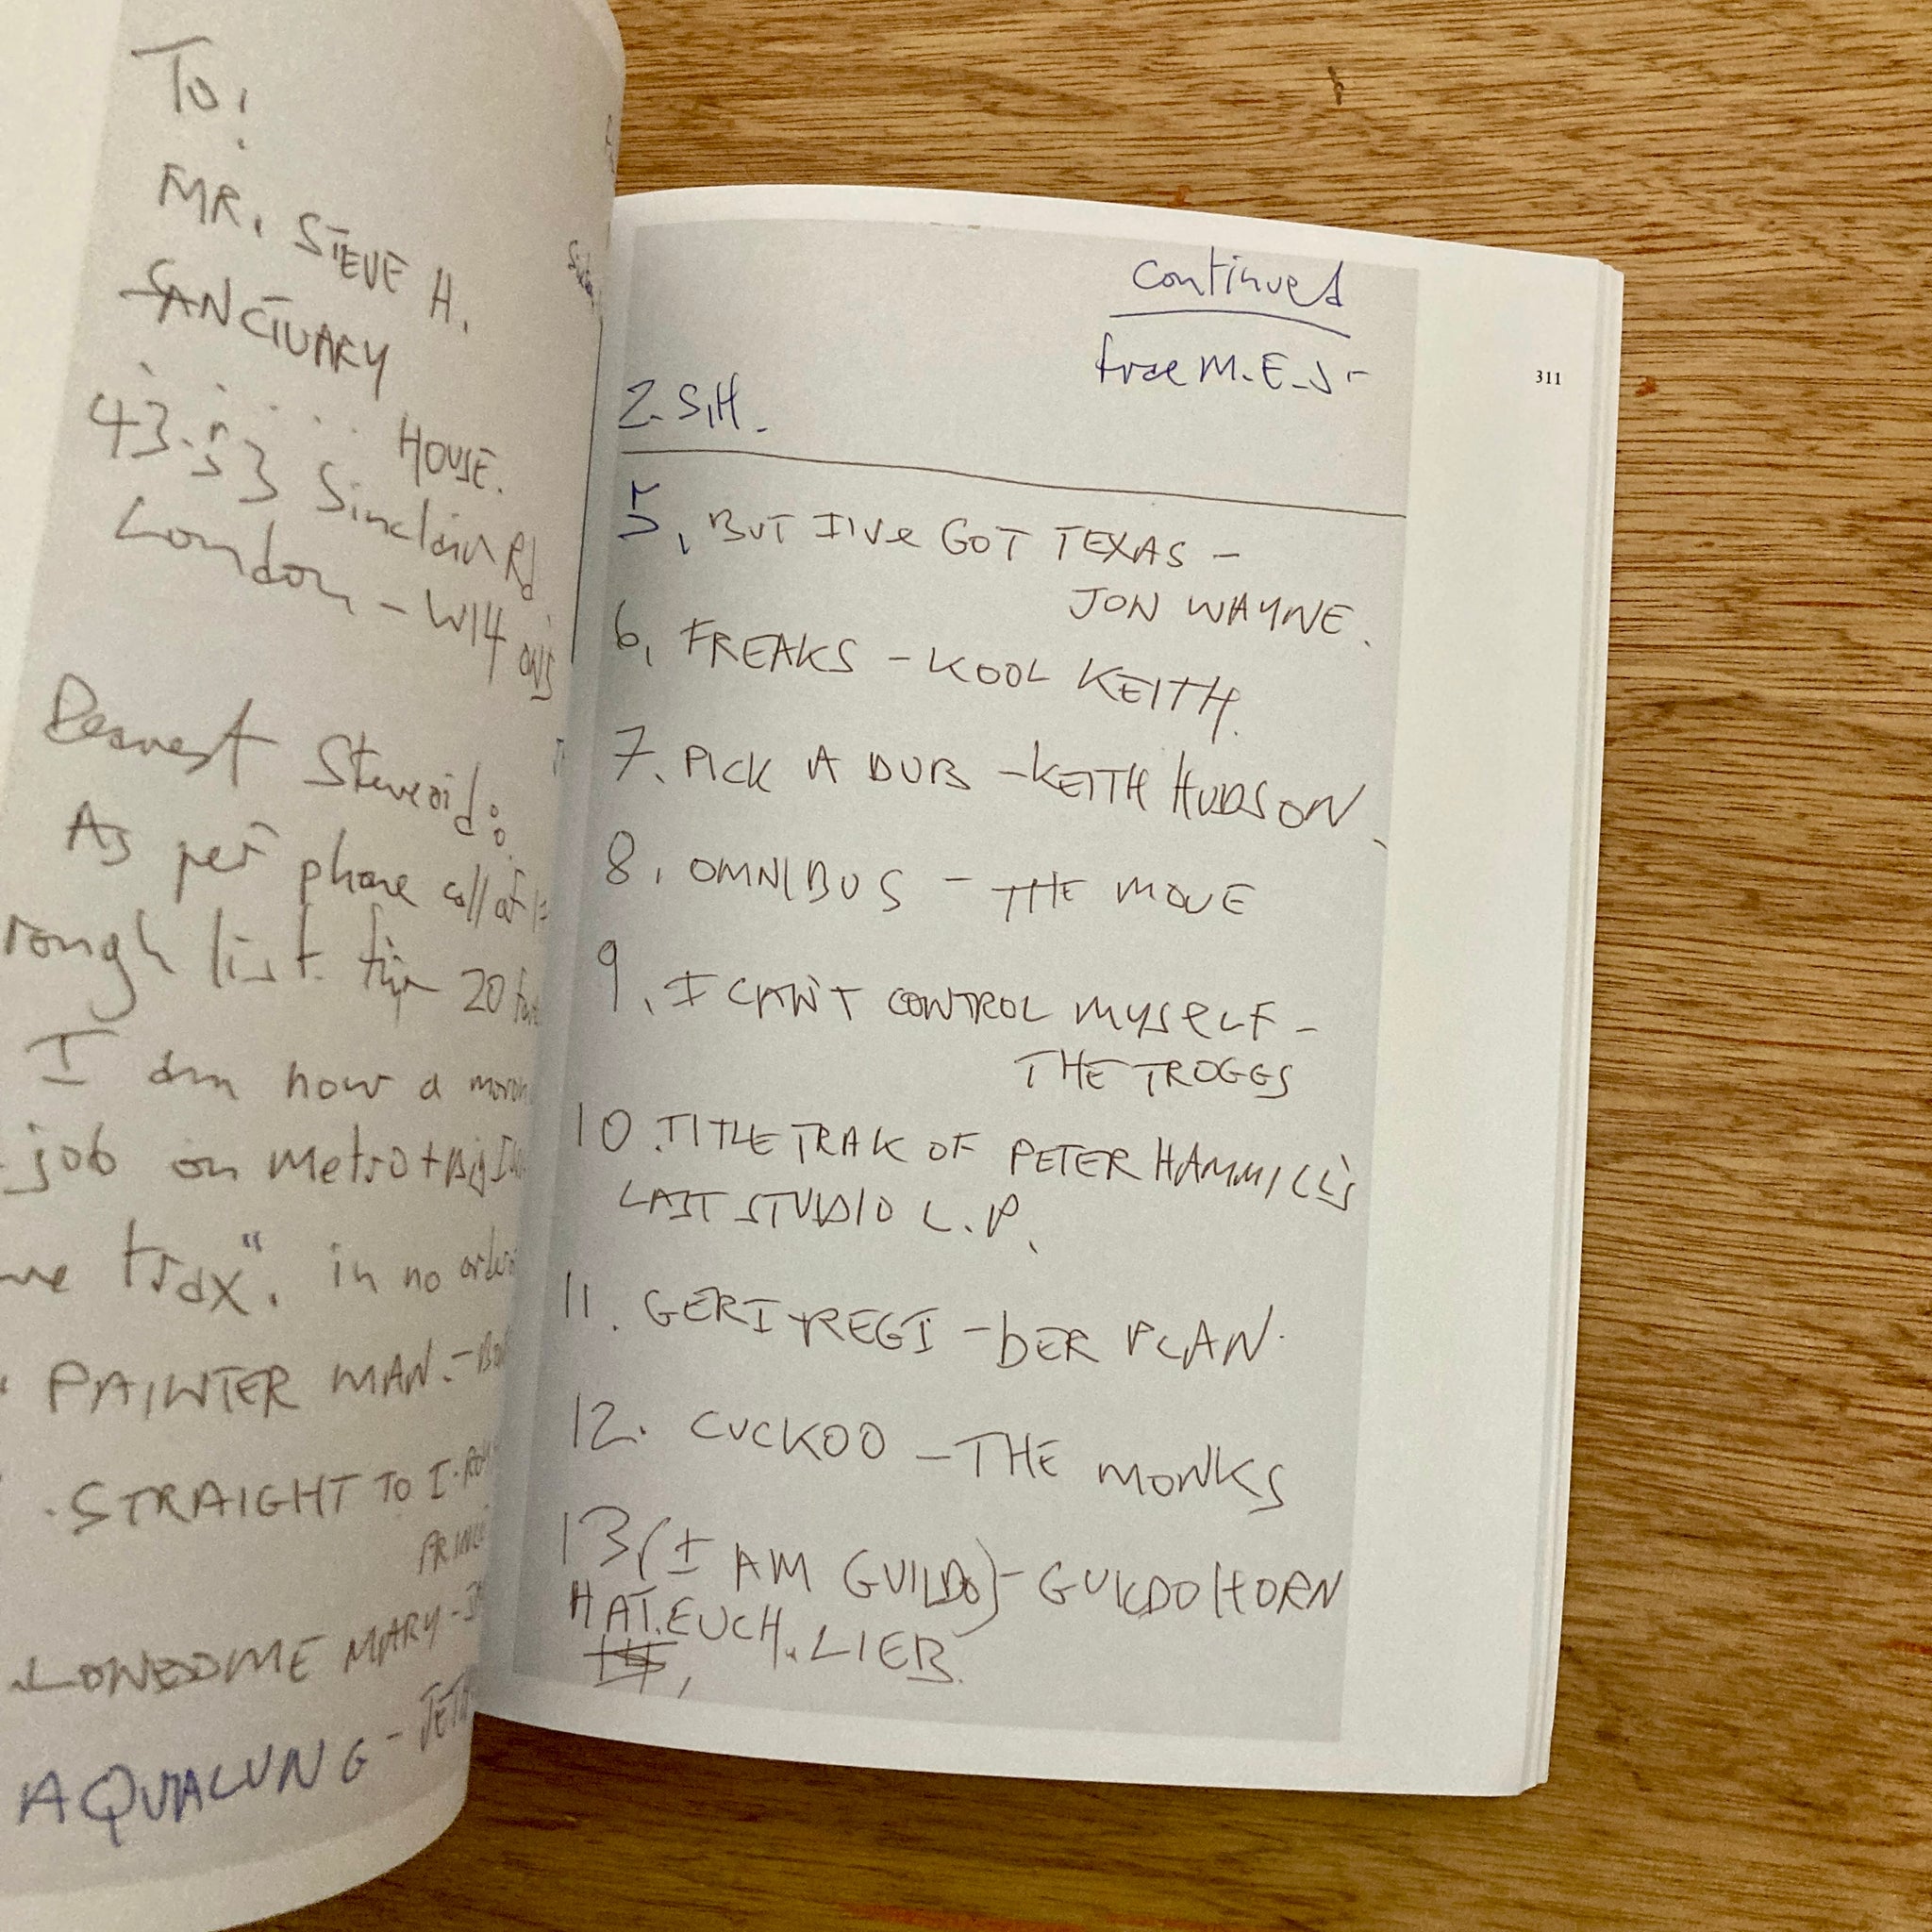 To:
MR. STEVE H.
SANCTUARY
HOUSE.
43-53 Sinclair Rd
London - W14
Dearest Steveoid:
As per phone call
rough list for 20
I am now a
job on Metro +
trax". in no
PAINTER MAN. -
STRAIGHT TO I.
LONESOME MARY -
AQUALUNG -
continued
M.E.S-
2. S.H.
311
5, BUT I'VE GOT TEXAS -
JON WAYNE.
6, FREAKS - KOOL KEITH.
7. PICK A DUB - KEITH HUDSON.
8, OMNIBUS - THE MOVE
9, I CAN'T CONTROL MYSELF -
THE TROGGS
10. TITLE TRAK OF PETER HAMMILL'S
LAST STUDIO L.P.
11. GERI REGI - DER PLAN.
12. CUCKOO - THE MONKS
13 (I AM GUILDO) - GUILDO HORN
HAT. EUCH. LIEB.